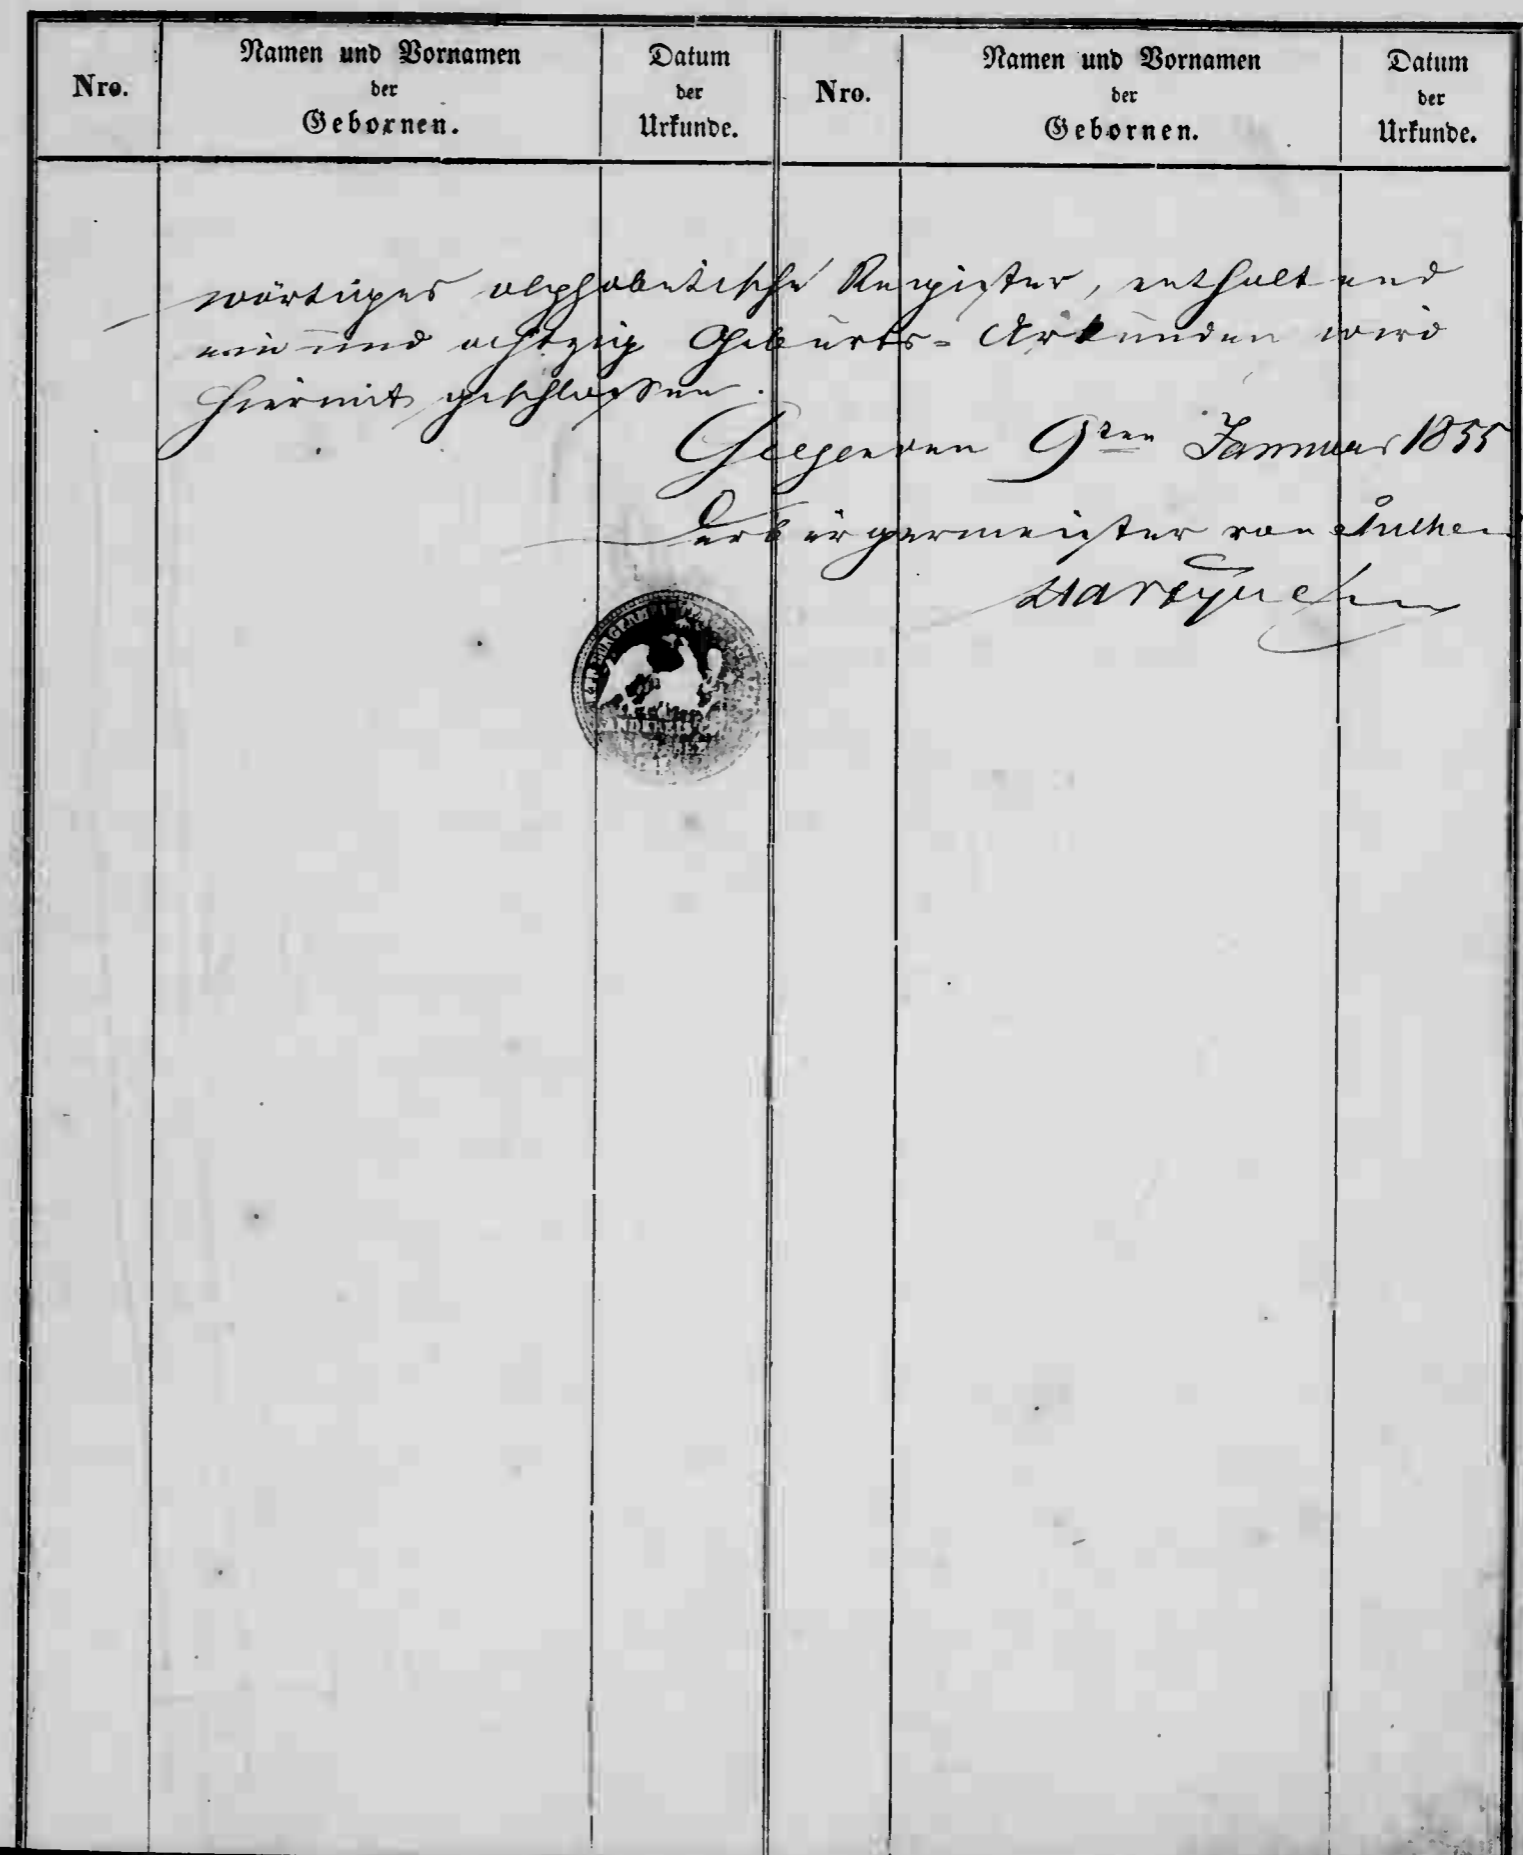 Nro.
Namen und Vornamen
der
Gebornen.
Datum
der
Urkunde.
Nro.
Namen und Vornamen
der
Gebornen.
Datum
der
Urkunde.
wärtiges alphabetische Register, enthaltend
ein und achtzig Geburts-Urkunden wird
hiermit geschlossen.
den 9ten Januar 1855
Der Bürgermeister von
LANDKREIS